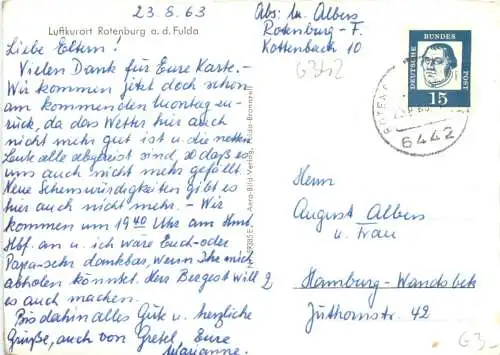 23.8.63
Luftkurort Rotenburg a. d. Fulda
Liebe Eltern!
Vielen Dank für Eure Karte.-
Wir kommen jetzt doch schon
am kommenden Montag zu-
rück, da das Wetter hier auch
nicht mehr gut ist u. die netten
Leute alle abgereist sind, so daß es
uns auch nicht mehr gefällt.
Neue Sehenswürdigkeiten gibt es
hier auch nicht mehr. - Wir
kommen um 19 40 Uhr am Hmb.
Hbf. an u. ich wäre Euch - oder
Papa - sehr dankbar, wenn Ihr mich
abholen könntet. Herr Bergest will
es auch machen.
Bis dahin alles Gute u. herzliche
Grüße, auch von Gretel, Eure
Marianne.
Abs: M. Albers
Rotenburg - F.
Kottenbach 10
DEUTSCHE BUNDES POST
15
6442
Herrn
August Albers
u. Frau
Hamburg-Wandsbek
Jüthornstr. 42
2